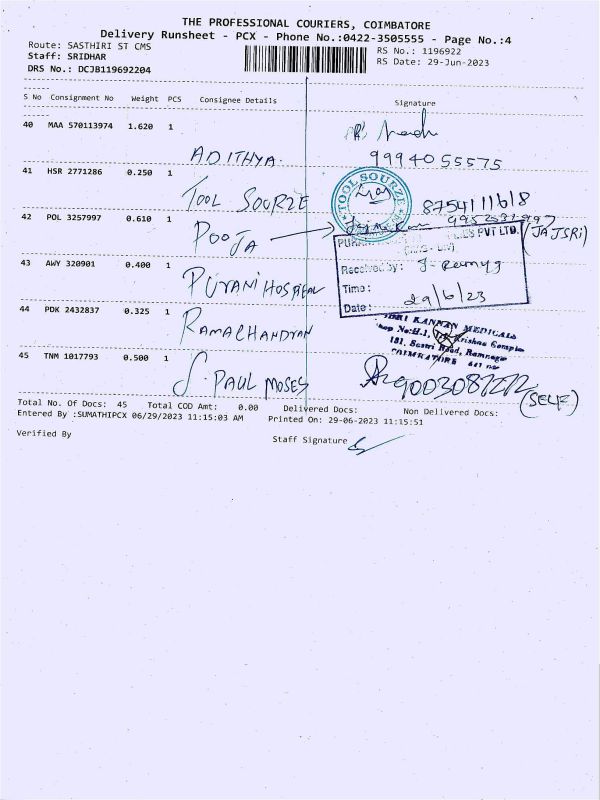 THE PROFESSIONAL COURIERS, COIMBATORE
Delivery Runsheet - PCX - Phone No.:0422-3505555 - Page No.:4
Route: SASTHIRI ST CMS
RS No.: 1196922
Staff: SRIDHAR
RS Date: 29-Jun-2023
DRS No.: DCJB119692204
S No Consignment No Weight PCS Consignee Details Signature
40 MAA 570113974 1.620 1
ADITHYA. 9994055575
41 HSR 2771286 0.250 1
TOOL SOURZE
TOOL SOURZE 8754111618
42 POL 3257997 0.610 1
POOJA
(JAJSRI)
PVT LTD.
43 AWY 320901 0.400 1
Received by:
PURANI HOSPITAL
Time:
Date: 29/6/23
44 PDK 2432837 0.325 1
RAMACHANDRAN
KANNAN MEDICALS
Krishna Complex
101, Sastri Road, Ramnagar
COIMBATORE
45 TNM 1017793 0.500 1
S. PAUL MOSES
(SELF)
Total No. Of Docs: 45 Total COD Amt: 0.00 Delivered Docs: Non Delivered Docs:
Entered By :SUMATHIPCX 06/29/2023 11:15:03 AM Printed On: 29-06-2023 11:15:51
Verified By Staff Signature